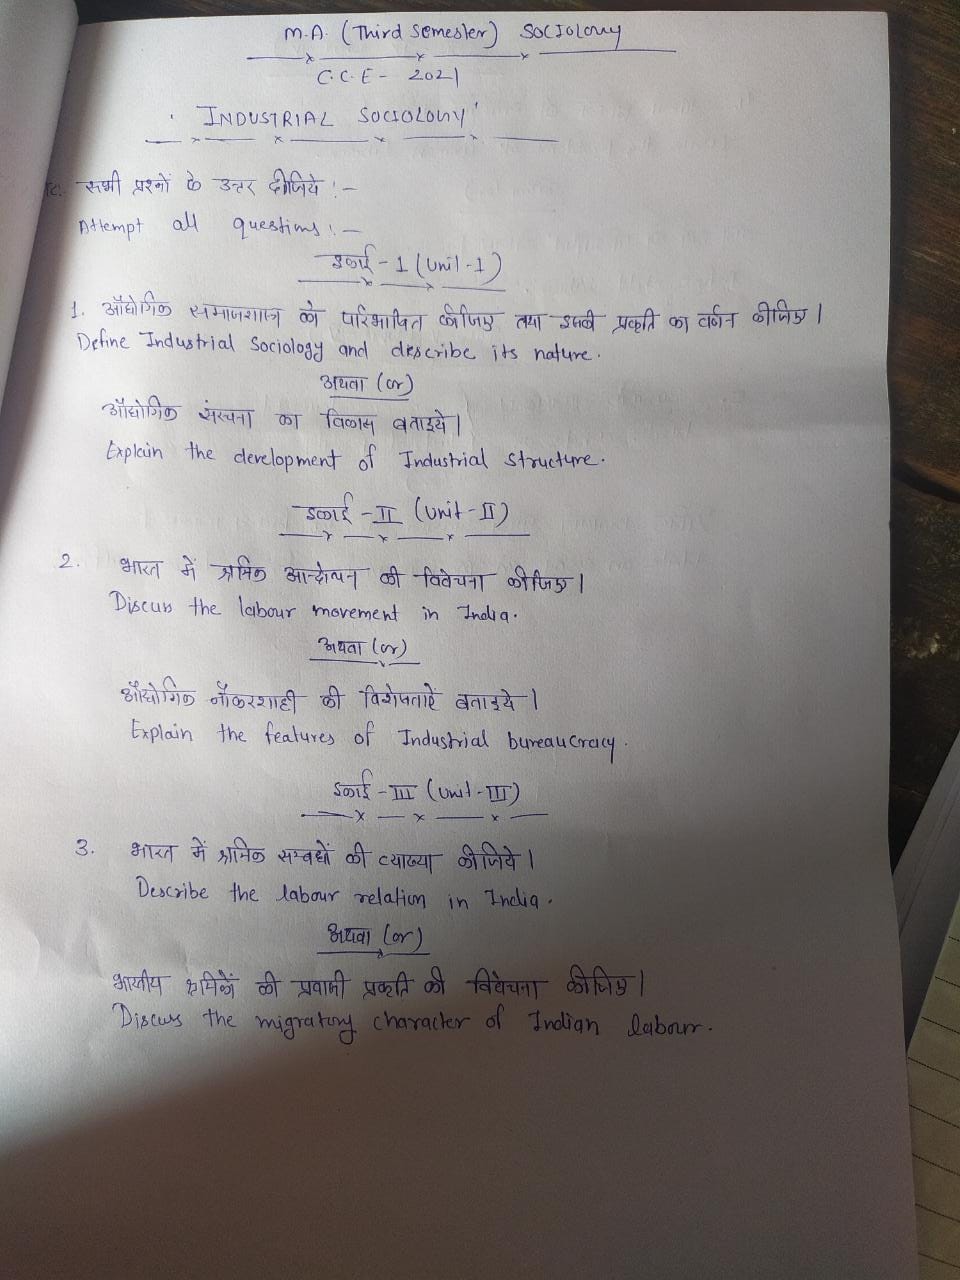 M.A. (Third Semester) Sociology
C.C.E - 2021
'INDUSTRIAL SOCIOLOGY'
सभी प्रश्नों के उत्तर दीजिये :-
Attempt all questions :-
इकाई - 1 (Unit - 1)
1. औद्योगिक समाजशास्त्र को परिभाषित कीजिए तथा इसकी प्रकृति का वर्णन कीजिए।
Define Industrial Sociology and describe its nature.
अथवा (or)
औद्योगिक संरचना का विकास बताइये।
Explain the development of Industrial structure.
इकाई - II (Unit - II)
2. भारत में श्रमिक आन्दोलन की विवेचना कीजिए।
Discuss the labour movement in India.
अथवा (or)
औद्योगिक नौकरशाही की विशेषताऐं बताइये।
Explain the features of Industrial bureaucracy.
इकाई - III (Unit - III)
3. भारत में श्रमिक सम्बधों की व्याख्या कीजिये।
Describe the labour relation in India.
अथवा (or)
भारतीय श्रमिकों की प्रवासी प्रकृति की विवेचना कीजिए।
Discuss the migratory character of Indian labour.